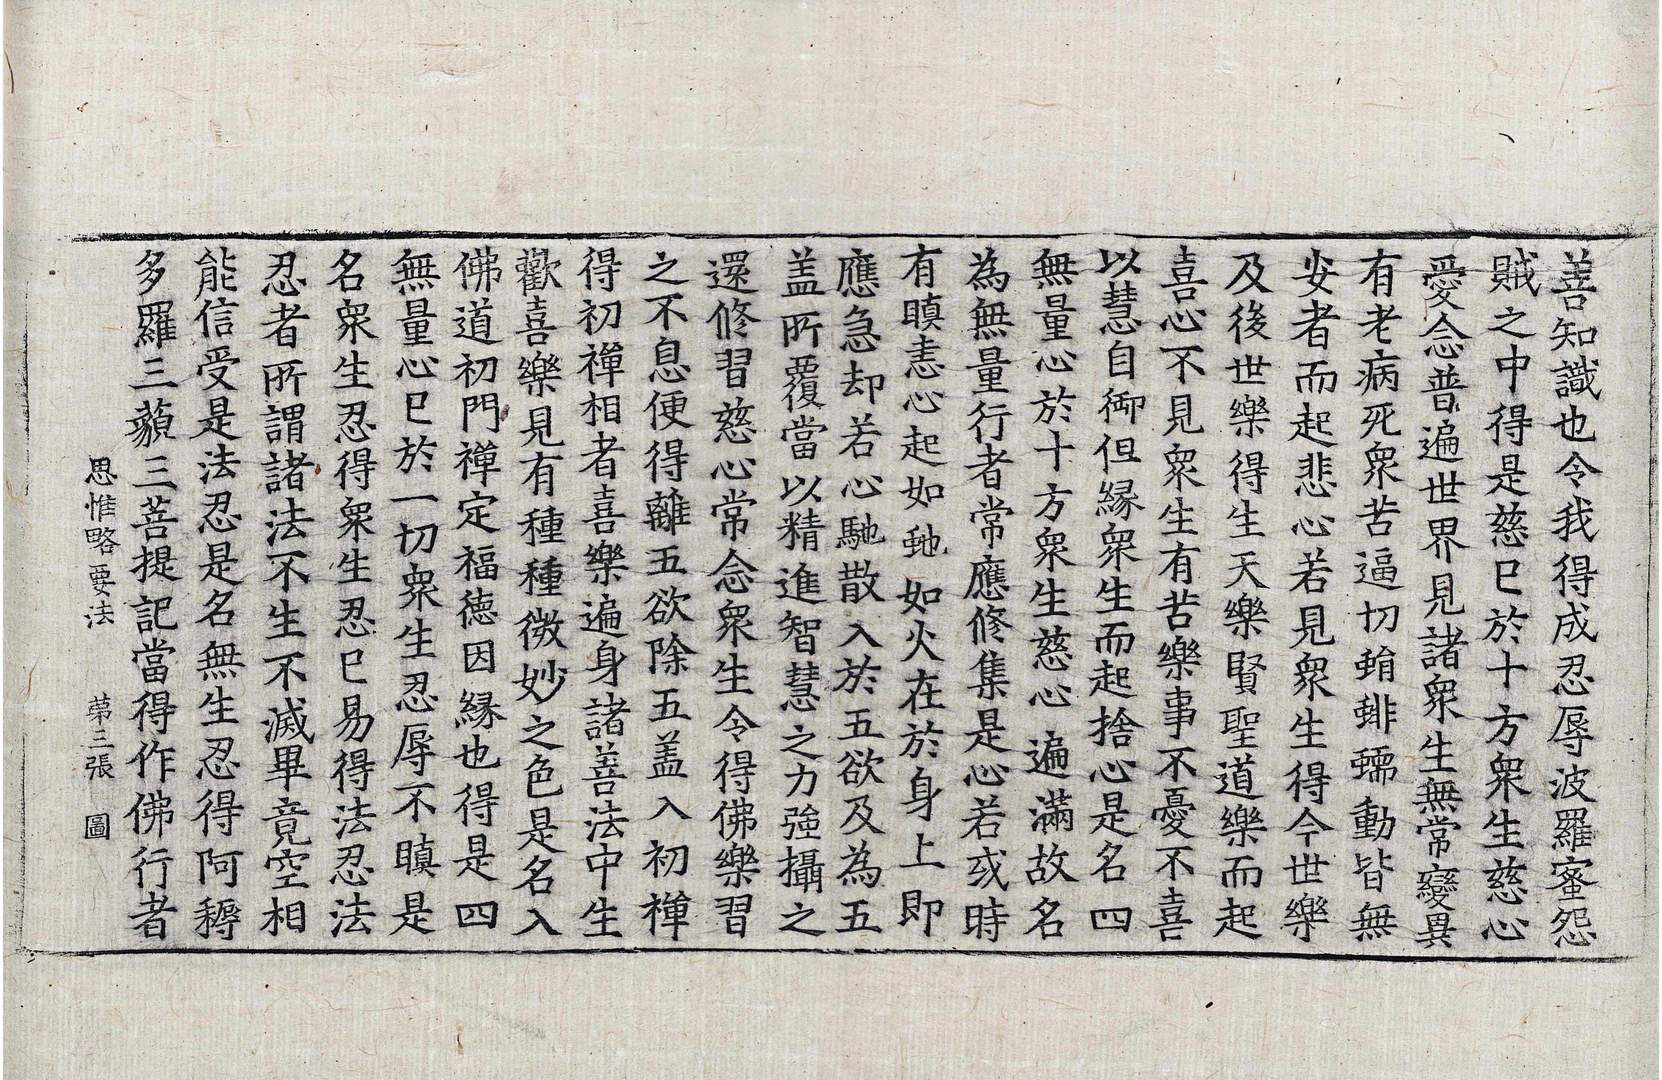 善知識也令我得成忍辱波羅蜜怨
賊之中得是慈已於十方衆生慈心
愛念普遍世界見諸衆生無常變異
有老病死衆苦逼切蜎蜚蠕動皆無
安者而起悲心若見衆生得今世樂
及後世樂得生天樂賢聖道樂而起
喜心不見衆生有苦樂事不憂不喜
以慧自御但縁衆生而起捨心是名四
無量心於十方衆生慈心遍滿故名
為無量行者常應修集是心若或時
有瞋恚心起如虵如火在於身上即
應急却若心馳散入於五欲及為五
盖所覆當以精進智慧之力強攝之
還修習慈心常念衆生令得佛樂習
之不息便得離五欲除五盖入初禅
得初禅相者喜樂遍身諸善法中生
歡喜樂見有種種微妙之色是名入
佛道初門禅定福德因縁也得是四
無量心已於一切衆生忍辱不瞋是
名衆生忍得衆生忍已易得法忍法
忍者所謂諸法不生不滅畢竟空相
能信受是法忍是名無生忍得阿耨
多羅三藐三菩提記當得作佛行者
思惟略要法 苐三張 圖